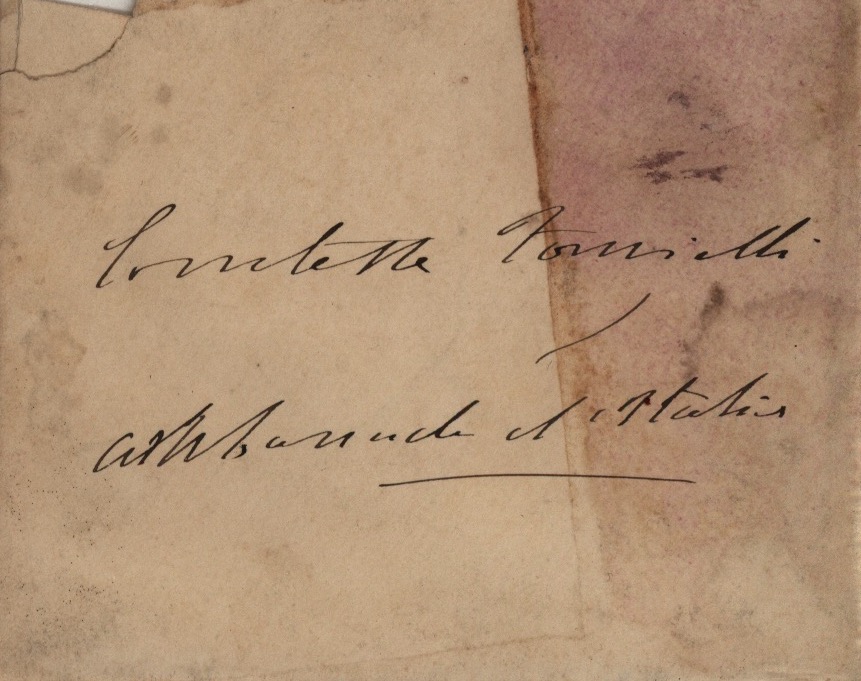 Comtesse Tornielli
Ambassade d'Italie